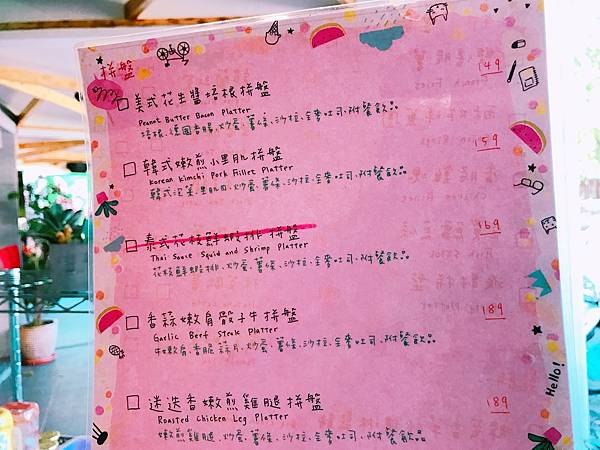 拼盤
Hello
□ 美式花生醬培根拼盤 149
Peanut Butter Bacon Platter
培根、德國香腸、炒蛋、薯條、沙拉、全麥吐司、附餐飲品
□ 韓式嫩煎小里肌拼盤 159
Korean Kimchi Pork Fillet Platter
韓式泡菜、里肌肉、炒蛋、薯條、沙拉、全麥吐司、附餐飲品
□ 泰式花枝鮮蝦排拼盤 169
Thai Sauce Squid and Shrimp Platter
花枝鮮蝦排、炒蛋、薯條、沙拉、全麥吐司、附餐飲品
□ 香蒜嫩肩骰子牛拼盤 189
Garlic Beef Steak Platter
牛嫩肩、香脆蒜片、炒蛋、薯條、沙拉、全麥吐司、附餐飲品
□ 迷迭香嫩煎雞腿拼盤 189
Roasted Chicken Leg Platter
嫩煎雞腿、炒蛋、薯條、沙拉、全麥吐司、附餐飲品
Hello!